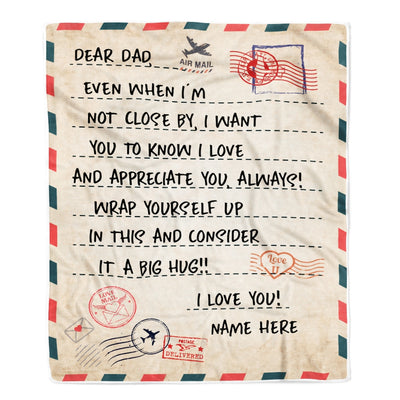 DEAR DAD,
AIR MAIL
EVEN WHEN I'M
NOT CLOSE BY, I WANT
YOU TO KNOW I LOVE
AND APPRECIATE YOU, ALWAYS!
WRAP YOURSELF UP
IN THIS AND CONSIDER
IT A BIG HUG!!
Love
U
I LOVE YOU!
LOVE
MAIL
NAME HERE
POSTAGE
DELIVERED